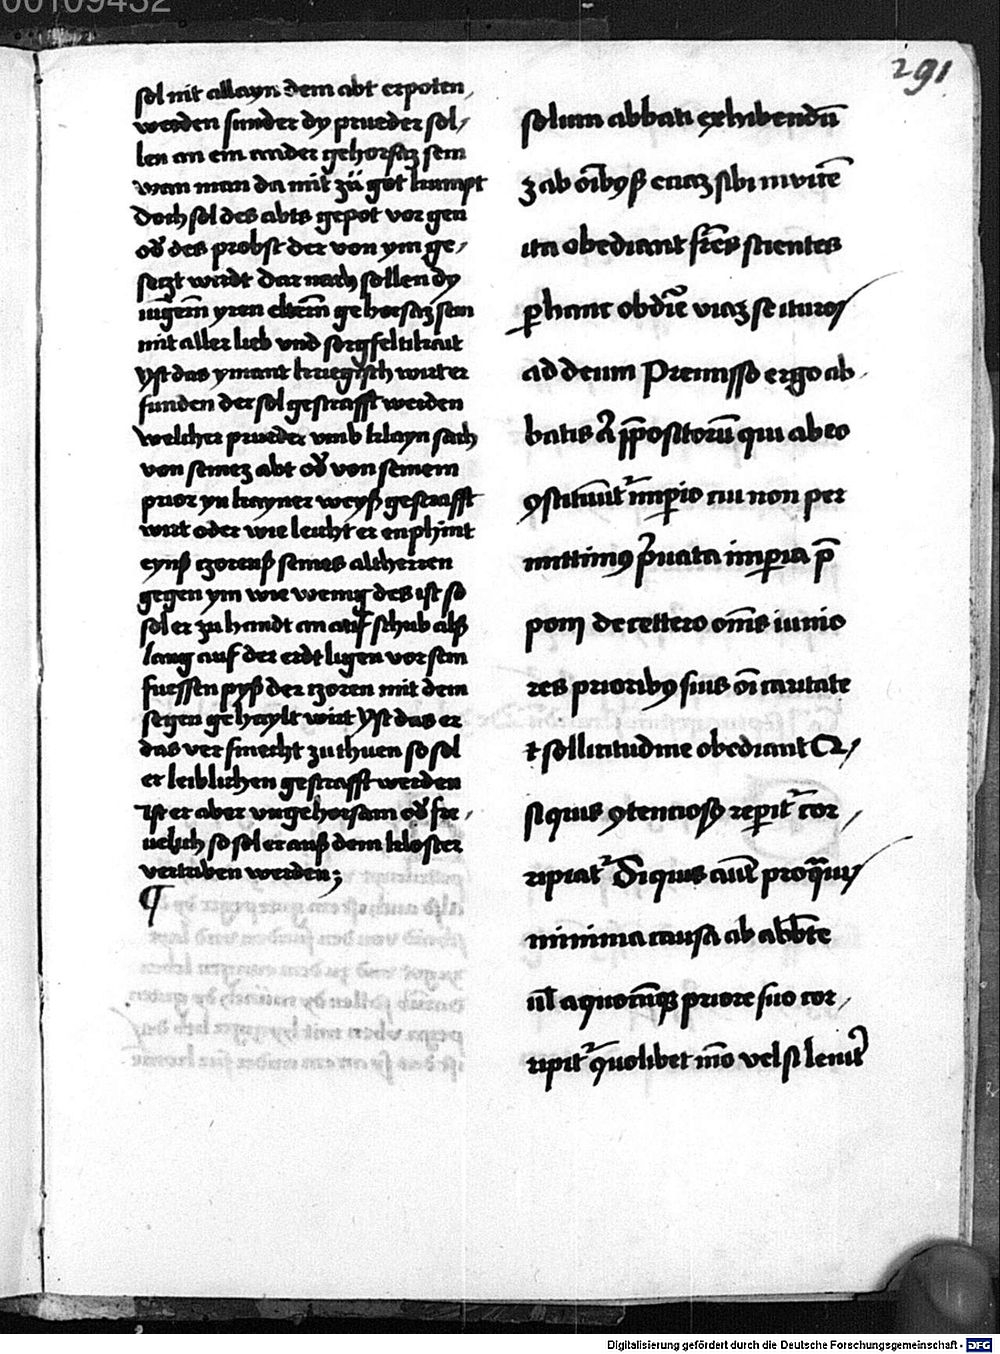 00109432
291
sol nit allayn dem abt erpoten
werden sunder dy prueder sol⸗
len an ein ander gehorsaʒ sein
wan man da mit zü got kumpt
doch sol des abts gepot vor gen
od̕ des probst der von ym ge⸗
setzt wirdt Dar nach sollen dy
iūgern̄ yren eltern̄ gehorsaʒ sein
mit aller lieb vnd sorgfeltikait
Yst das ymant kriegisch wirt er
funden der sol gestrafft werden
Welcher prueder vmb klayn sach
von seineʒ abt od̕ von seinem
prior yn kayner weyß gestrafft
wirt oder wie leicht er enphint
eynß czorenß seines altherren
gegen ym wie wenig des ist so
sol er zu handt an auff schub alß
lang auf der erdt ligen vor sein
fuessen pyß der czoren mit dem
segen gehaylt wirt Yst das er
das versmecht zu thuen so sol
er leiblichen gestrafft werden
Ist er aber vngehorsam od̕ fre⸗
uelich so sol er auß dem kloster
vertriben werden;
¶
solum abbati exhibendū
ʒ ab oībꝰ etiaʒ sibi inviceʒ
ita obediant fr̄es scientes
ꝑ hanc obdīe viaʒ se ituros
ad deum Premisso ergo ab⸗
batis aut p̄positorū qui ab eo
ꝯstituūtͬ imꝑio cui non per
mittimꝰ p̄uata imꝑia p̄
poni de cettero om̄s iunio
res prioribꝰ suis oī caritate
⁊ sollicitudine obediant Q⸗
si quis ꝯtenciosꝰ reꝑitͬ cor⸗
ripiatͬ Si quis aūt pro quis
minima causa ab abb̄te
ul̄ a quocūqꝫ priore suo cor⸗
ripitͬ quolibet mō vel si leuit̕
Digitalisierung gefördert durch die Deutsche Forschungsgemeinschaft - DFG